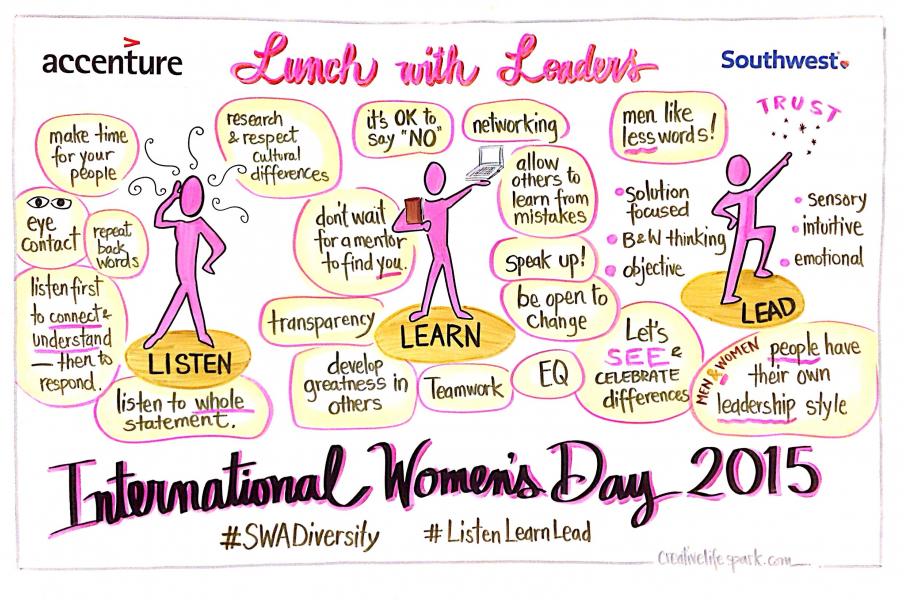 accenture
Lunch with Leaders
Southwest
make time
for your
people
research
& respect
cultural
differences
eye
contact
repeat
back
words
listen first
to connect &
understand
— then to
respond.
LISTEN
listen to whole
statement.
it's OK to
say "NO"
networking
allow
others to
learn from
mistakes
don't wait
for a mentor
to find you.
speak up!
transparency
be open to
change
LEARN
develop
greatness in
others
Teamwork
EQ
men like
less words!
TRUST
• Solution
focused
• B&W thinking
• objective
• sensory
• intuitive
• emotional
LEAD
Let's
SEE &
CELEBRATE
differences
MEN & WOMEN
people have
their own
leadership style
International Women's Day 2015
#SWADiversity
#ListenLearnLead
creativelifespark.com